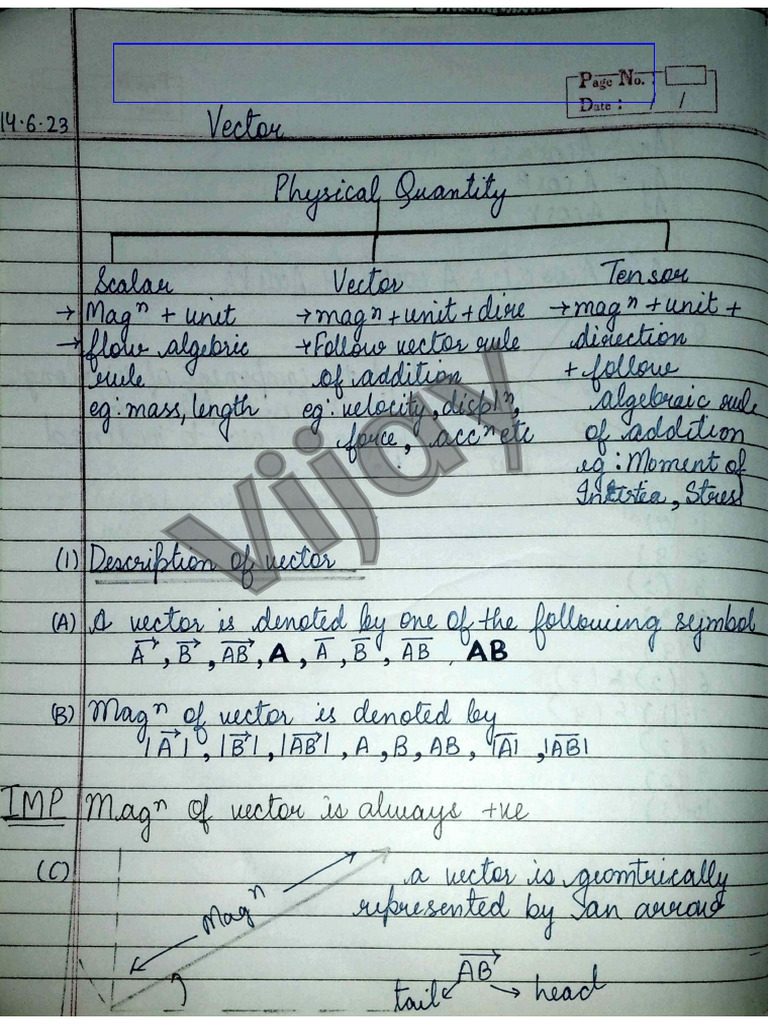 Page No. :
Date : / /
14.6.23
Vector
Physical Quantity
Scalar
→ Magⁿ + unit
→ flow algebric
rule
eg: mass, length
Vector
→ magⁿ + unit + dire
→ Follow vector rule
of addition
eg: velocity, displⁿ,
force, accⁿ etc
Tensor
→ magⁿ + unit +
direction
+ follow
algebraic rule
of addition
eg: Moment of
Inertea, Stress
Vijay
(1) Description of vector
(A) A vector is denoted by one of the following symbol
A⃗, B⃗, A͞B⃗, 𝐀, A̅, B̅, A̅B̅, 𝐀𝐁
(B) Magⁿ of vector is denoted by
|A⃗|, |B⃗|, |A͞B⃗|, A, B, AB, |A̅|, |A̅B̅|
IMP Magⁿ of vector is always +ve
(C) a vector is geomtrically
represented by an arrow
Magⁿ
A͞B⃗
tail head